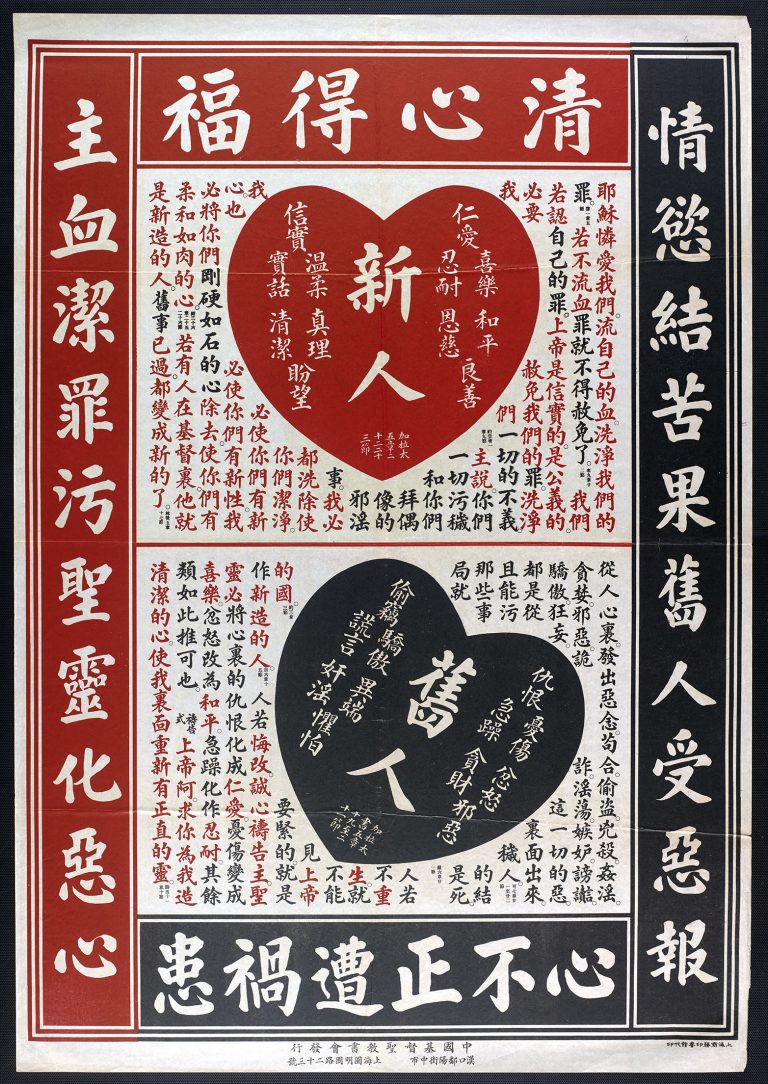 清心得福
情慾結苦果舊人受惡報
主血潔罪污聖靈化惡心
耶穌憐愛我們。流自己的血。洗淨我們的
罪。若不流血罪就不得赦免了。我們
若認自己的罪。上帝是信實的。是公義的
必要赦免我們的罪。洗淨
我們一切的不義。
主說。你們
一切污穢
和你們
拜偶
像的
邪淫
事。我必
都洗除使
你們潔淨。
我必使你們有新
心也必使你們有新性。我
必將你們剛硬如石的心除去使你們有
柔和如肉的心。若有人在基督裏他就
是新造的人舊事已過都變成新的了
仁愛 喜樂 和平
忍耐 恩慈 良善
新人
信實 温柔 真理
實話 清潔 盼望
加拉太
五章二
十二二十
三節
從人心裏。發出惡念。苟合。偷盜。兇殺。姦淫。
貪婪。邪惡。詭詐。淫蕩。嫉妒。謗讟。
驕傲。狂妄。這一切的惡。
都是從裏面出來。
且能污穢人。
那些事的結
局就是死。
人若
不重
生。就
不能
見上帝
的國。要緊的就是
作新造的人。人若悔改。誠心禱告。主聖
靈必將心裏的仇恨化成仁愛。憂傷變成
喜樂。忿怒改為和平。急躁化作忍耐。其餘
類如此推可也。禱告式 上帝阿求你為我造
清潔的心。使我裏面重新有正直的靈。
仇恨 憂傷 忿怒
急躁 貪財 邪惡
舊人
偷竊 驕傲 異端
謊言 奸淫 懼怕
加拉太
書五章
十九至二
十一節
心不正遭禍患
中國基督聖教書會發行
漢口鄱陽街中市 上海圓明園路二十三號